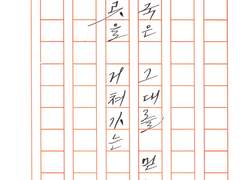 국은 그대를 먼
곳을 거쳐가는